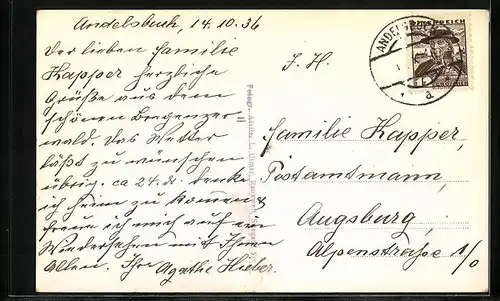 Andelsbuch, 14.10.36
Der lieben Familie
Kapper herzliche
Grüße aus dem
schönen Bregenzer
wald. Das Wetter
läßt zu wünschen
übrig. ca 24. denke
ich heim zu komen &
freue ich mich auf ein
Wiedersehen mit Ihnen
Allen. Ihre Agathe Hieber.
ÖSTERREICH
ANDEL
a
F. H.
Familie Kapper,
Postamtmann,
Augsburg,
Alpenstraße 1/0